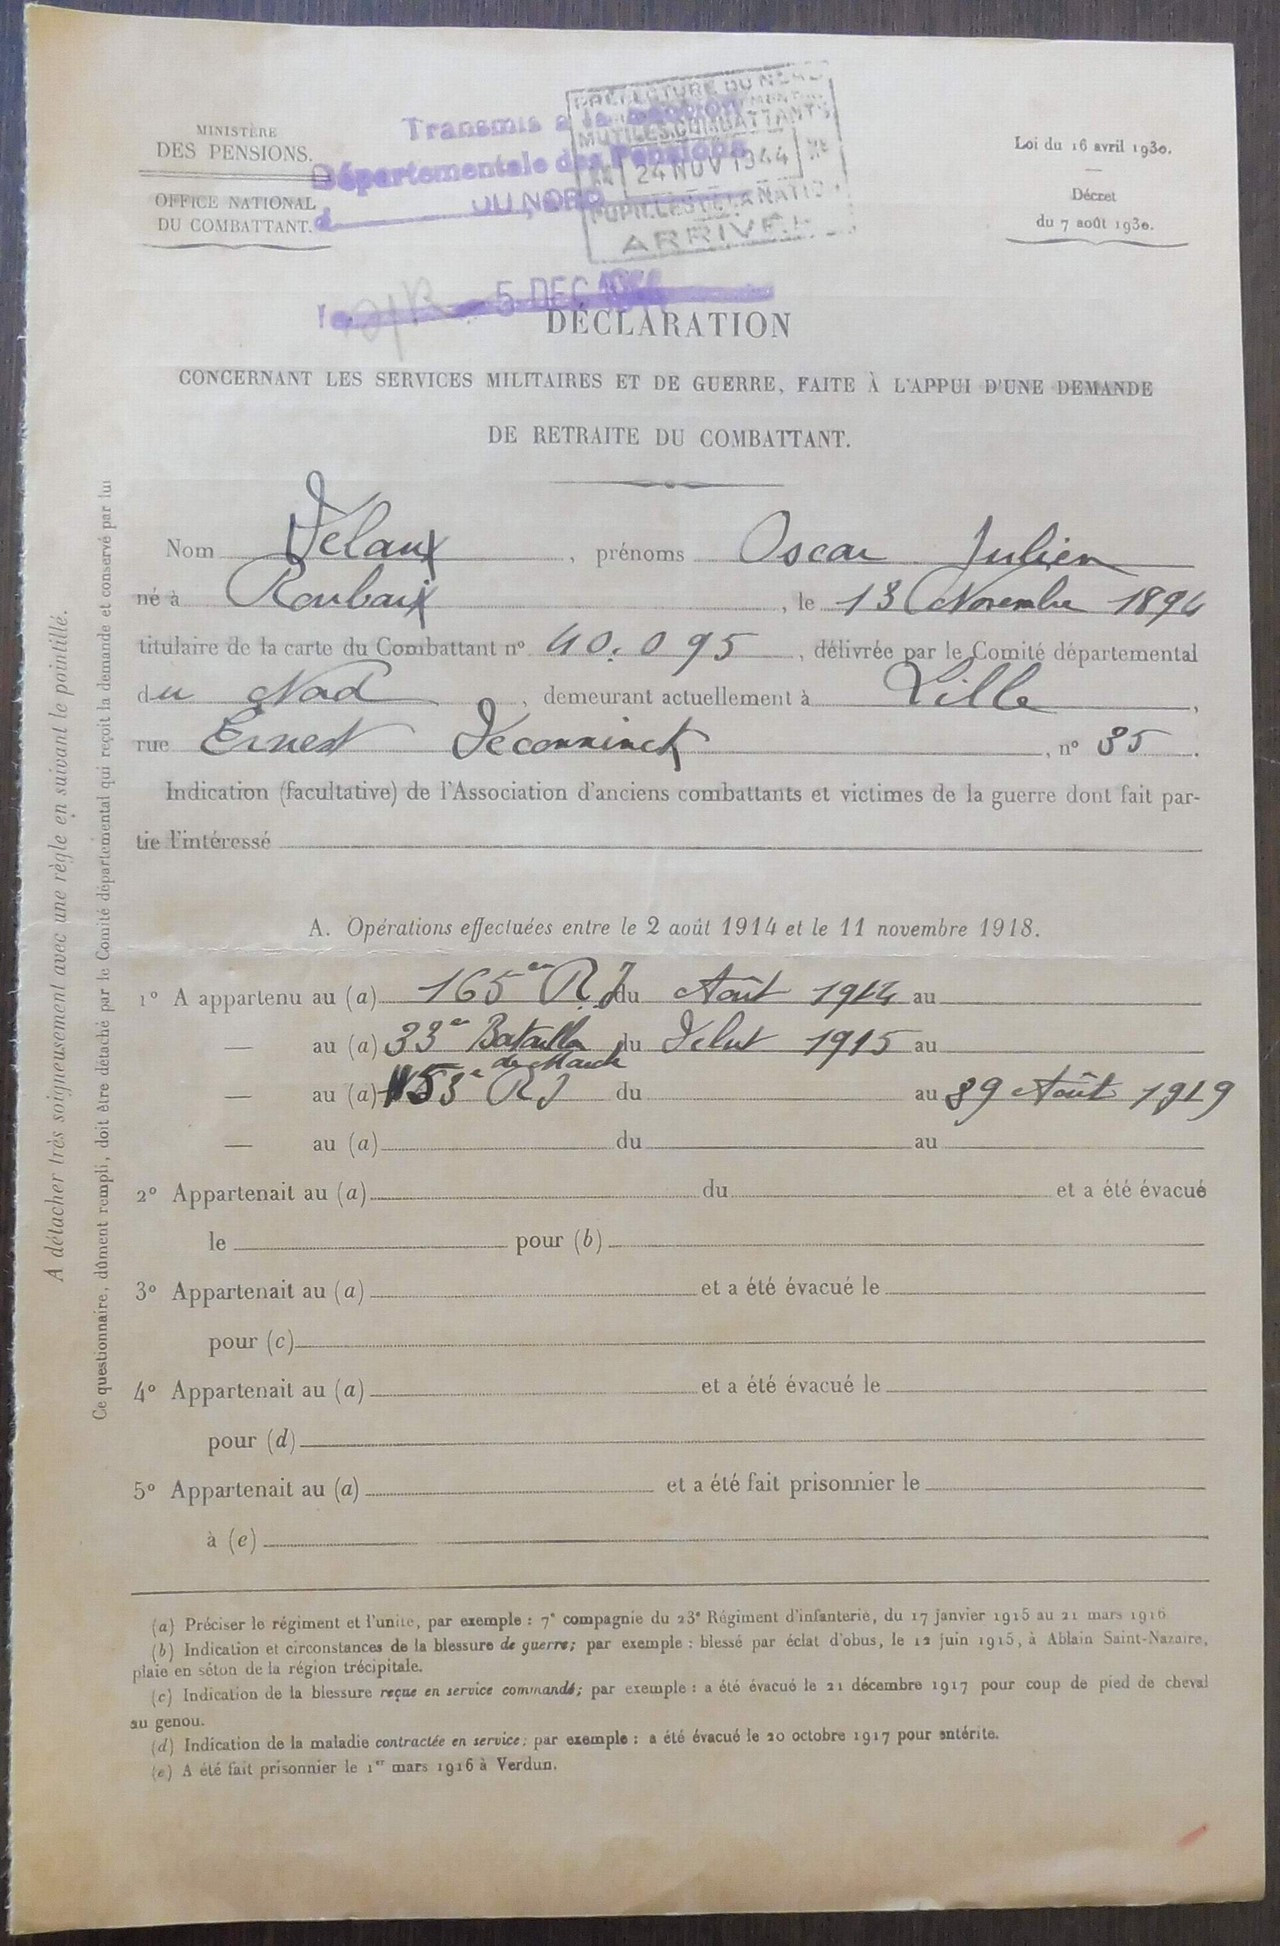 MINISTÈRE
DES PENSIONS.
OFFICE NATIONAL
DU COMBATTANT.
Transmis a la Section
Départementale des Pensions
d DU NORD
PRÉFECTURE DU NORD
MUTILÉS COMBATTANTS
24 NOV 1944
PUPILLES DE LA NATION
ARRIVÉE
Loi du 16 avril 1930.
Décret
du 7 août 1930.
le 5 DEC 1944
DÉCLARATION
CONCERNANT LES SERVICES MILITAIRES ET DE GUERRE, FAITE À L'APPUI D'UNE DEMANDE
DE RETRAITE DU COMBATTANT.
Nom Delaux, prénoms Oscar Julien
né à Roubaix, le 13 Novembre 1894
titulaire de la carte du Combattant n° 40.095, délivrée par le Comité départemental
du Nord, demeurant actuellement à Lille,
rue Ernest Deconninck, n° 35.
Indication (facultative) de l'Association d'anciens combattants et victimes de la guerre dont fait par-
tie l'intéressé
A. Opérations effectuées entre le 2 août 1914 et le 11 novembre 1918.
1° A appartenu au (a) 165e R I du Août 1914 au
— au (a) 33e Bataillon de Marche du Debut 1915 au
— au (a) 153e R I du au 29 Août 1919
— au (a) du au
2° Appartenait au (a) du et a été évacué
le pour (b)
3° Appartenait au (a) et a été évacué le
pour (c)
4° Appartenait au (a) et a été évacué le
pour (d)
5° Appartenait au (a) et a été fait prisonnier le
à (e)
(a) Préciser le régiment et l'unite, par exemple : 7e compagnie du 23e Régiment d'infanterie, du 17 janvier 1915 au 21 mars 1916
(b) Indication et circonstances de la blessure de guerre; par exemple : blessé par éclat d'obus, le 12 juin 1915, à Ablain Saint-Nazaire,
plaie en séton de la région trécipitale.
(c) Indication de la blessure reçue en service commandé; par exemple : a été évacué le 21 décembre 1917 pour coup de pied de cheval
au genou.
(d) Indication de la maladie contractée en service; par exemple : a été évacué le 20 octobre 1917 pour entérite.
(e) A été fait prisonnier le 1er mars 1916 à Verdun.
A détacher très soigneusement avec une règle en suivant le pointillé.
Ce questionnaire, dûment rempli, doit être détaché par le Comité départemental qui reçoit la demande et conservé par lui